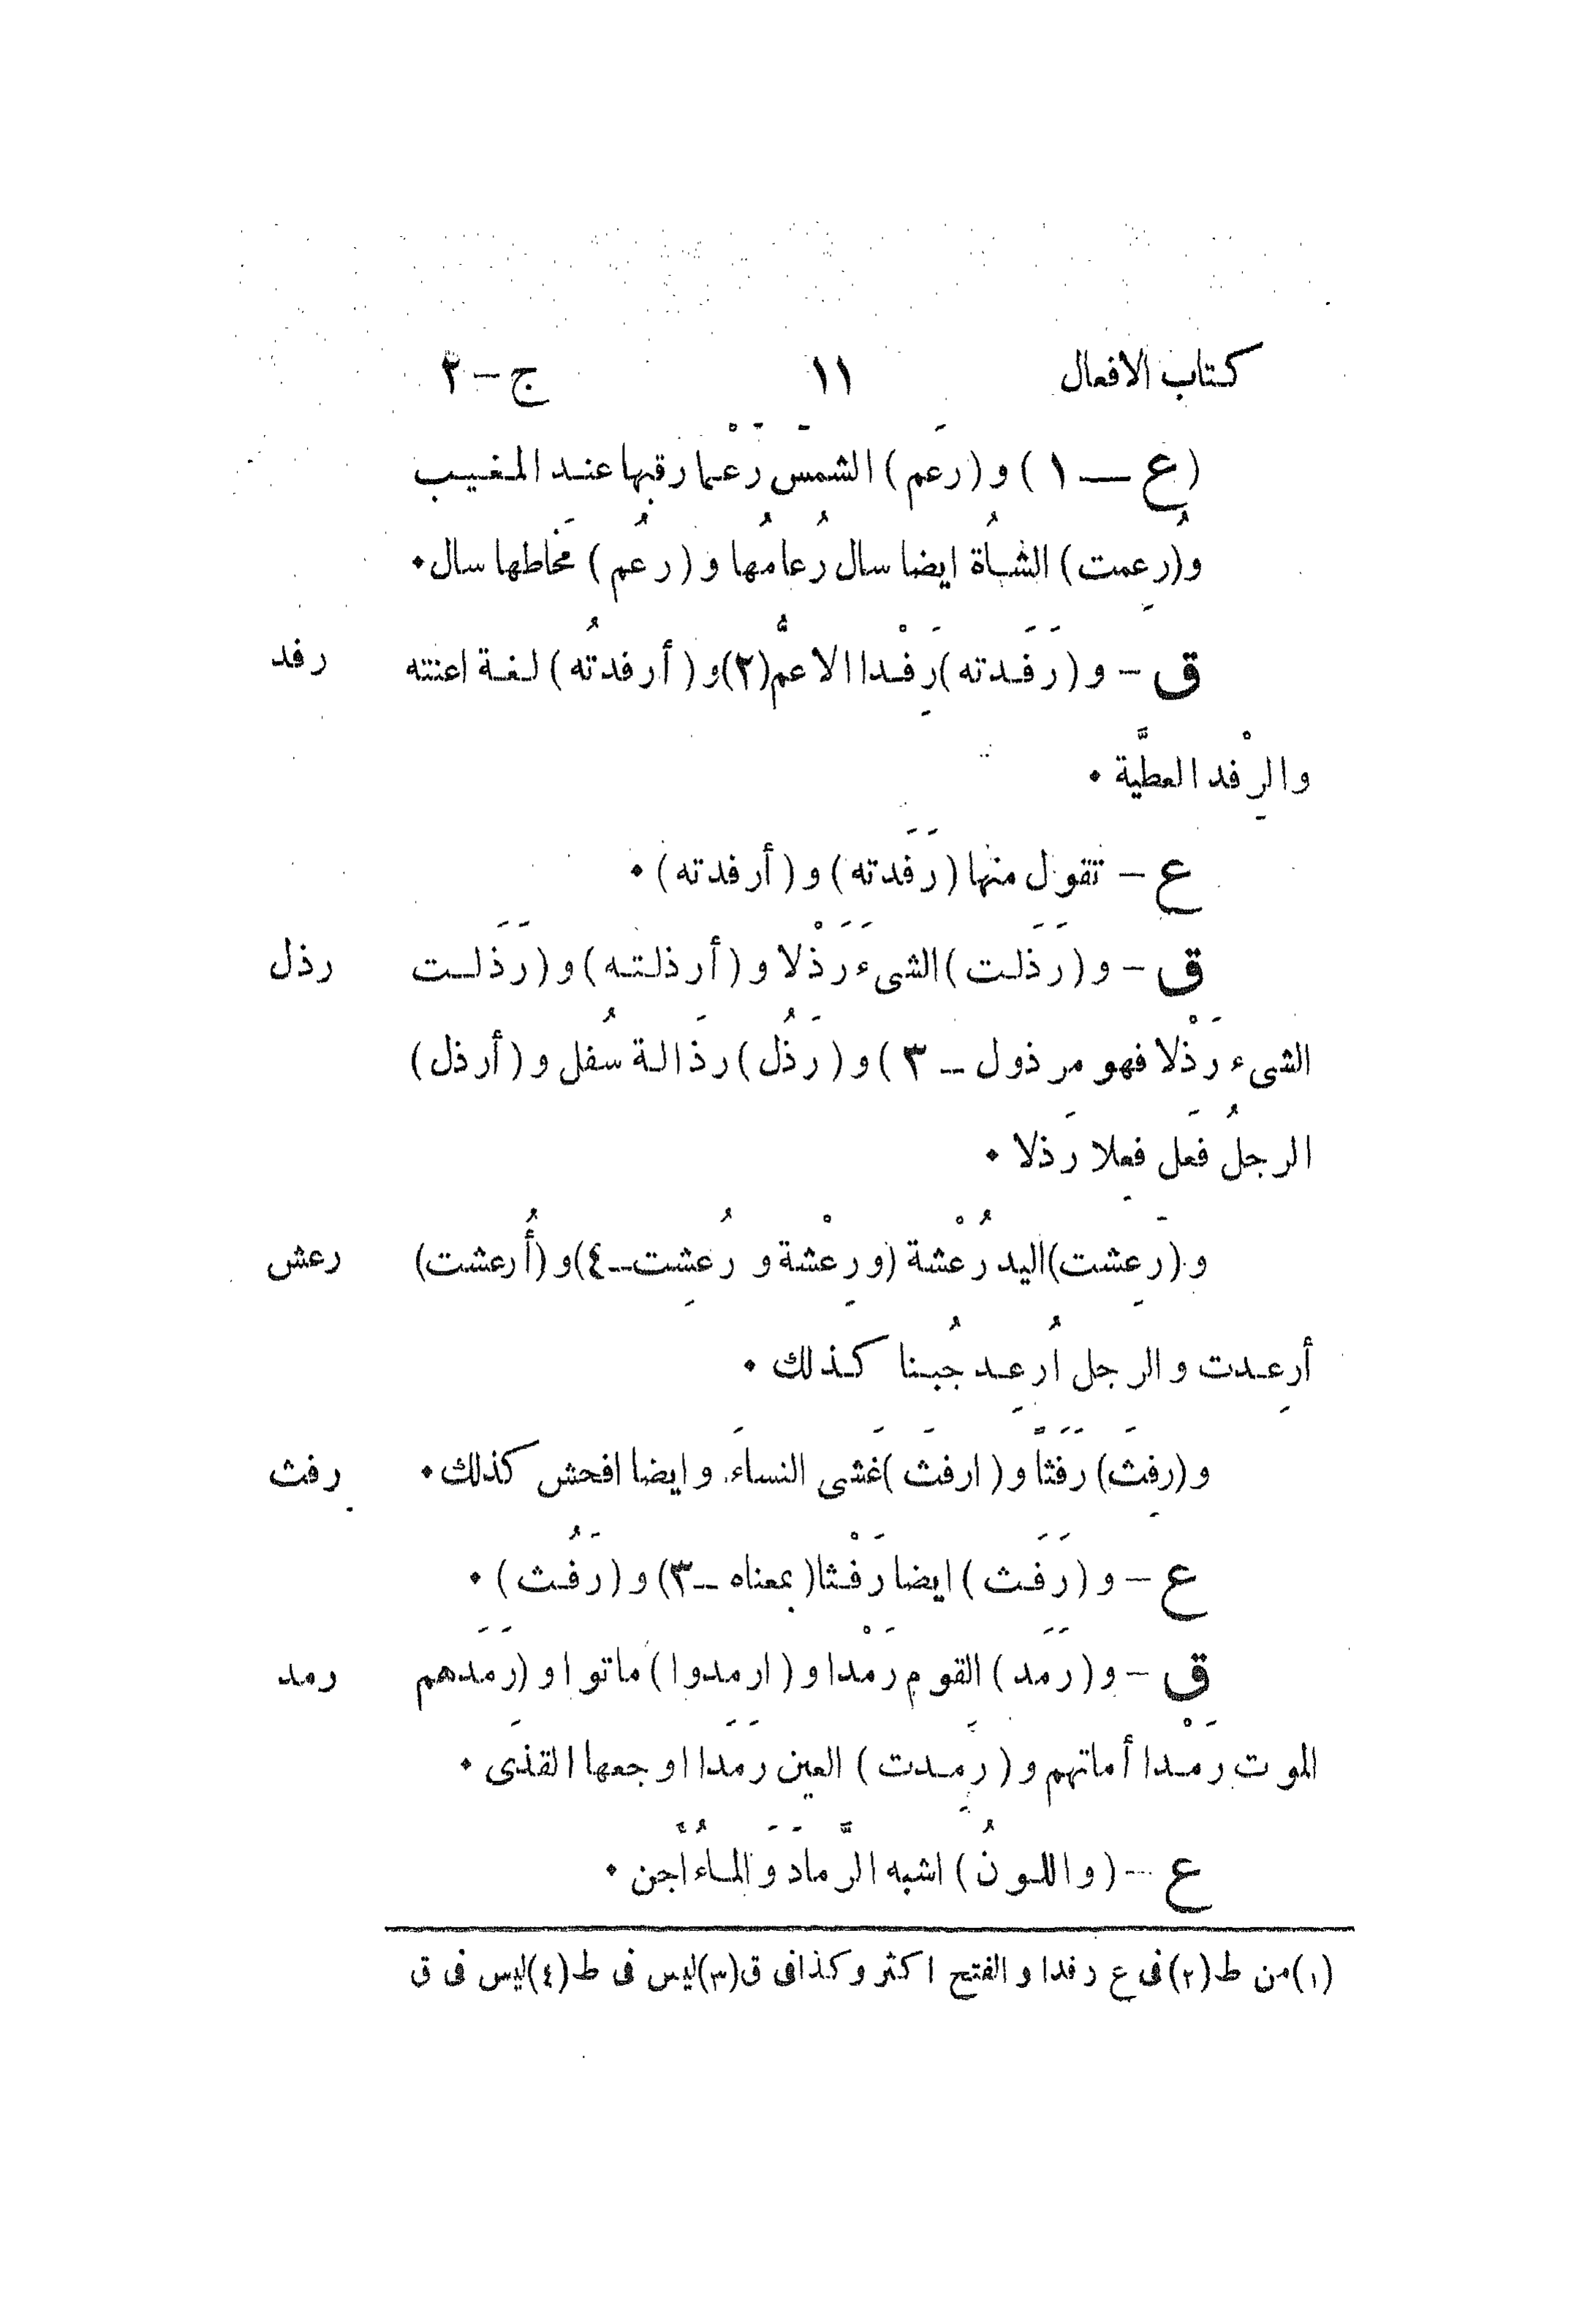 كتاب الافعال ١١ ج – ٢
(ع — ١) و (رَعم) الشمسَ رَعْما رقبها عند المغيب
و(رعِمت) الشاةُ ايضا سال رُعامُها و (رعُم) مَخاطها سال ٠
ق – و (رَفَدته) رَِفْدا الاعمُّ (٢) و (أرفدتُه) لغة اعنته رفد
والرِفْد العطيَّة ٠
ع – تقول منها (رَفَدته) و (أرفدته) ٠
ق – و (رَذَلت) الشىء رَذْلا و (أرذلته) و (رَذَلت رذل
الشىء رَذْلا فهو مرذول – ٣) و (رَذُل) رذَالة سُفل و (أرذل)
الرجلُ فعَل فِعلا رَذلا ٠
و (رَعِشت) اليد رُعْشة (ورِعْشة و رُعِشت – ٤) و (أُرعشت) رعش
أرِعدت والرجل اُرعِد جُبنا كذلك ٠
و (رفِثَ) رَفَثاً و (ارفثَ) غَشى النساءَ وايضا افحش كذلك ٠ رفث
ع – و (رَفَث) ايضا رَفْثا (بمعناه – ٣) و (رَفُث) ٠
ق – و (رَمَد) القوم رَمْدا و (ارمدوا) ماتوا و (رَمَدهم رمد
الموت رَمْدا أماتهم و (رَمِدت) العين رَمَدا اوجعها القذَى ٠
ع – (واللونُ) اشبه الرَّمادَ وَالماءُ اجن ٠
(١) من ط (٢) فى ع رفدا والفتح اكثر وكذا فى ق (٣) ليس فى ط (٤) ليس فى ق